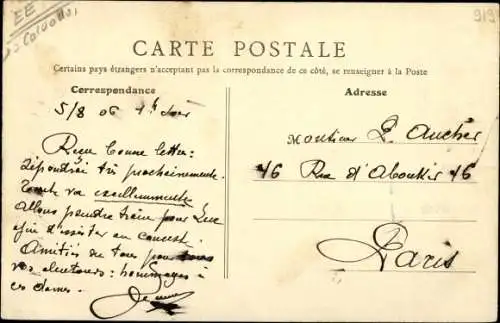 EE
CARTE POSTALE
Certains pays étrangers n'acceptant pas la correspondance de ce côté, se renseigner à la Poste
Correspondance
Adresse
5/8 06
Reçu bonne lettre:
Répondrai très prochainement.
Tout va excellemment
Allons prendre train pour
afin d'assister au concert.
Amitiés de tous pour tous
vos alentours: hommages à
ces dames.
Monsieur L. Aucher
46 Rue d'Aboukir 46
Paris